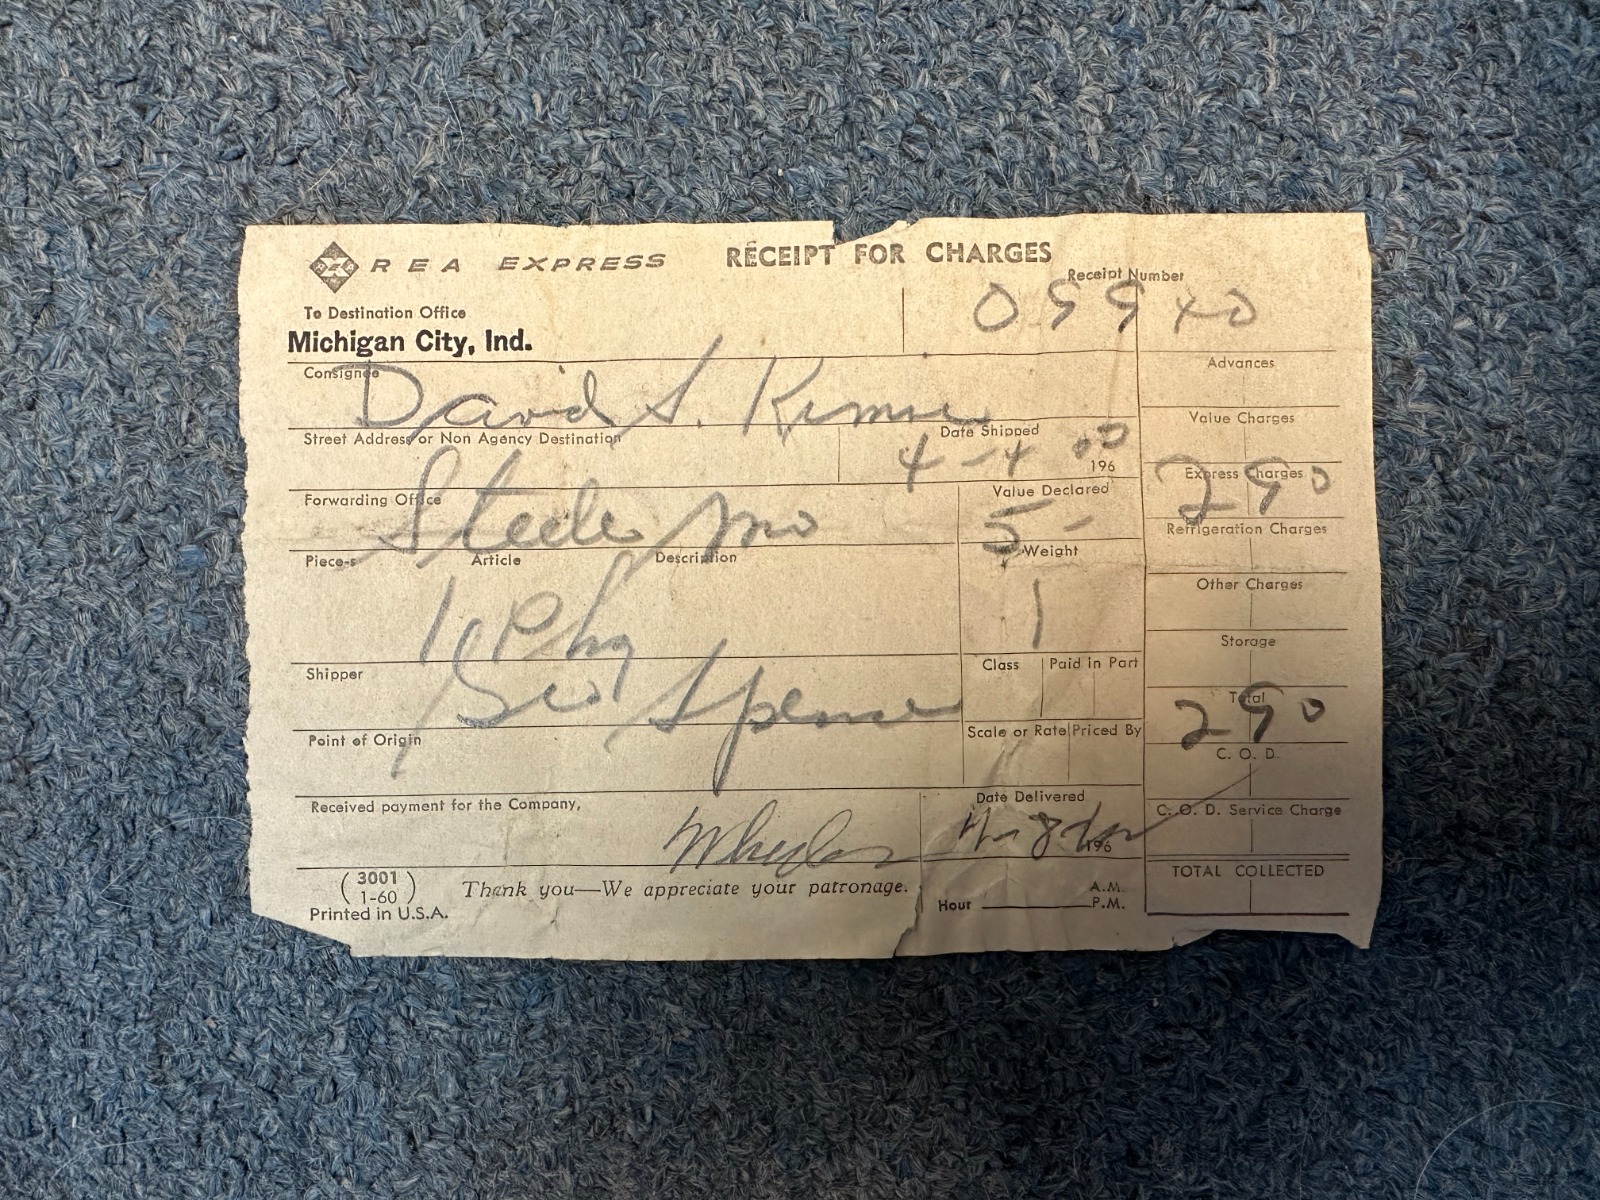 REA EXPRESS RECEIPT FOR CHARGES
Receipt Number
To Destination Office
Michigan City, Ind.
Advances
Consignee David S.
Value Charges
Street Address or Non Agency Destination
Date Shipped 4-4 196
Express Charges 290
Forwarding Office Steele Mo
Value Declared 5-
Refrigeration Charges
Piece-s Article Description
Weight 1
Other Charges
1 Pkg
Storage
Shipper Geo Spence
Class Paid in Part
Total 290
Point of Origin
Scale or Rate Priced By
C. O. D.
Received payment for the Company,
Date Delivered 4-8 196
C. O. D. Service Charge
(3001
1-60)
Thank you—We appreciate your patronage.
Hour A.M.
P.M.
TOTAL COLLECTED
Printed in U.S.A.